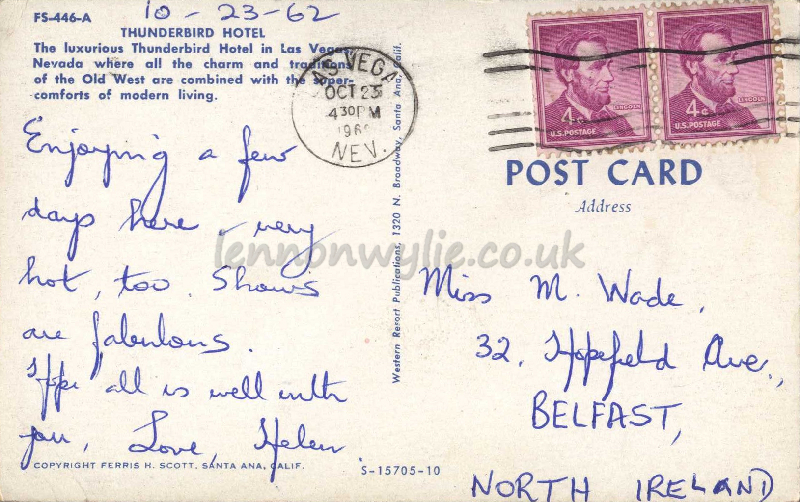 10 - 23-62
FS-446-A
THUNDERBIRD HOTEL
The luxurious Thunderbird Hotel in Las Vegas
Nevada where all the charm and traditions
of the Old West are combined with the super-
comforts of modern living.
LAS VEGAS
OCT 23
430PM
NEV.
Enjoying a few
days here - very
hot, too. Shows
are fabulous.
Hope all is well with
you, Love, Helen
COPYRIGHT FERRIS H. SCOTT, SANTA ANA, CALIF.
S-15705-10
Western Resort Publications, 1320 N. Broadway, Santa Ana, Calif.
4c
LINCOLN
U.S. POSTAGE
4c
LINCOLN
U.S. POSTAGE
POST CARD
Address
Miss M. Wade,
32, Hopefield Ave.,
BELFAST,
NORTH IRELAND
lennonwylie.co.uk